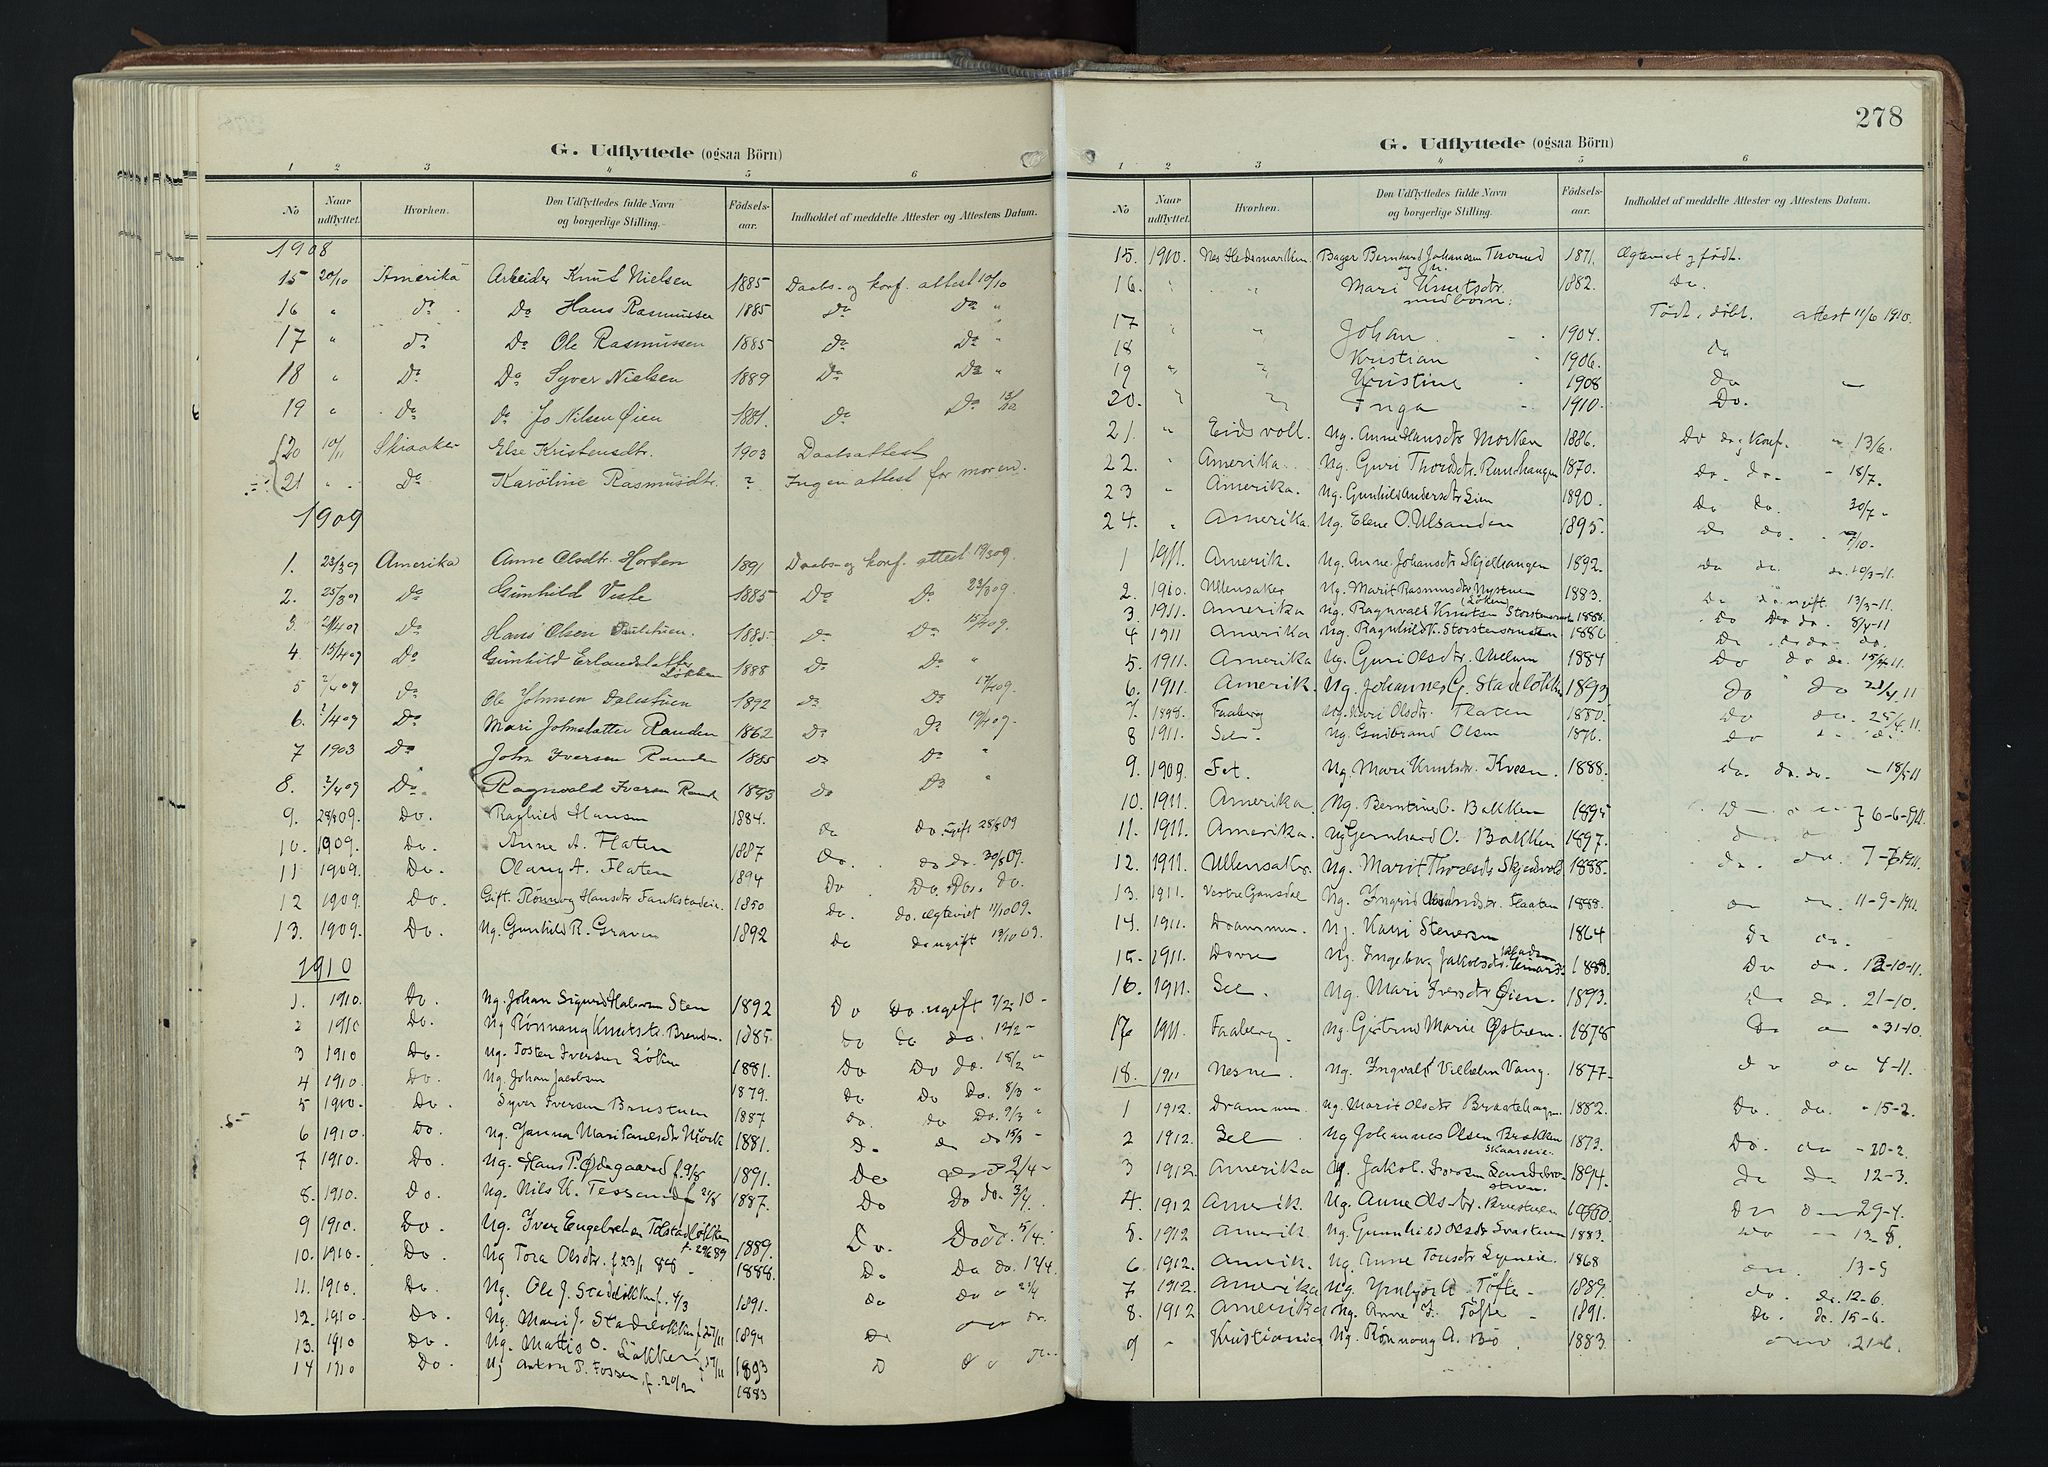 G. Udflyttede (ogsaa Börn)
1 2 3 4 5 6
No Naar udflyttet. Hvorhen. Den Udflyttedes fulde Navn og borgerlige Stilling. Födsels-aar. Indholdet af meddelte Attester og Attestens Datum.
1908
15 20/10 Amerika Arbeider Knut Nielsen 1885 Daabs- og konf. attest 10/10
16 " do Do Hans Rasmussen 1885 do Do "
17 " do Do Ole Rasmussen 1885 Do Do "
18 " Do Do Syver Nielsen 1889 Do Do "
19 " Do Do Jo Nilsen Øien Do Do
20 10/11 Skiaaker Else Kristensdtr. 1903 Daabsattest
21 " Do Karoline Rasmusdtr. ? Ingen attest for moren.
1909
1. 23/3 09 Amerika Anne Olsdtr. Horten 1891 Daabs- og konf. attest 19/3 09.
2. 25/3 09 Do Gunhild Veste 1885 Do Do 23/3 09.
3. Do Hans Olsen 1885 Do Do 15/4 09.
4. 15/4 09 Do Gunhild Erlandsdatter Løkken 1888 Do Do "
5 2/4 09 Do Ole Johnsen Dalestuen 1892 Do Do
6. 2/4 09 Do Mari Johnsdatter Randen 1862 Do Do
7 1903 Do John Iversen Randen 1885 Do Do "
8. 2/4 09 Do. Ragnvald Iversen Randen 1893 Do Do "
9. Do. Hansen 1884. do do. ugift 28/8 09
10. 1909. Do. Anne A. Flaten 1887 Do. do do. 30/8 09.
11 1909. Do. Olaug A. Flaten 1894 Do Do. Do. do.
12 1909. Do. Gift. Rønnog Hansdtr. 1850 Do. do. Ægteviet 11/10 09.
13. 1909. Do. Ug. Gunhild R. Graven 1892 do do ugift 19/10 09.
1910
1. 1910. Do. Ug. Johan Sigurd Halvorsen Sten 1892 Do Do. ugift 7/2 10 -
2 1910 Do. Ug. Rønnaug Knutsdtr. Brenden. 1885. do do do. 12/2 -
3 1910 Do. Ug. Tosten Iversen Løkken 1881. Do Do do. 18/2 "
4 1910. Do. Ug. Johan Jacobsen 1879. do Do Do. 8/3 "
5 1910. Do. Syver Iversen Brustuen 1887 do. do Do. 9/3 "
6 1910. Do. Ug. Janna Mari Paulsdtr. Mork 1881. do. do do 15/3 -
7 1910. Do. Ug. Hans P. Ødegaard f. 9/8 1891. Do do d 2/4 -
8. 1910. Do. Ug. Nils K. Tessand 1887. Do Do do. 3/4.
9 1910. Do. Ug. Iver Engebretsen Tolstadløkken 1889. Do. Do do. 5/4.
10. 1910. Do. Ug. Tora Olsdtr. f 23/1 88 - 1888. Do Do do. 12/4.
11. 1910. Do. Ug. Ole J. Stadeløkken f. 4/3 1891. do do
12. 1910. Do. Ug. Mari J. Stadeløkken 1894
13. 1910 do. Ug. Mattis O. Løkken 1893
14 1910 Do Ug Anton P. Fossen f. 20/2 1883
278
G. Udflyttede (ogsaa Börn)
1 2 3 4 5 6
No Naar udflyttet. Hvorhen. Den Udflyttedes fulde Navn og borgerlige Stilling. Födsels-aar. Indholdet af meddelte Attester og Attestens Datum.
15. 1910. Nes Hedemarken Bager Bernhard Johansen Thorud 1871. Ægteviet og født.
16. " " Mari Knutsdtr. 1882. Do.
med børn: Født, døbt. attest 11/6 1910.
17 " " Johan 1904. do
18 Kristian 1906.
19 " " Kristine 1908 Do
20. " " Inga 1910. Do.
21. " Eidsvoll. Ug. Anne Hansdtr. Morken 1886. Do do; konf. " 13/6.
22. " Amerika. Ug. Guri Thordsdtr. 1870. Do. do. - 18/7.
23 " Amerika. Ug. Gunhild Andersdtr. Lien 1890. Do do. 30/7.
24. " Amerika. Ug. Elene O. Ulsanden 1895. Do do. 9/10.
1 1911. Amerik. Ug. Anne Johansdtr. Skjelhaugen 1892. Do do. do. 10/3-11.
2. 1910. Ullensaker Ug. Marit Rasmusdtr. Nystuen 1883. Do do. ugift. 13/3-11.
3. 1911. Amerika Ug. Ragnvald Knutsen Storstensrusten 1888. Do Do do. 8/4-11
4 1911 Amerika Ug. Ragnhild K. Storstensrusten 1886 Do do do. do.
5. 1911. Amerika Ug. Guri Olsdtr. 1884 Do do do. 15/4 11.
6. 1911. Amerik. Ug. Johannes G. Stadeløkken 1893 Do do
7. Faaberg Ug. Mari Olsdtr. Flaten 1880. Do do.
8 1911. Sel. Ug. Gudbrand Olsen 1876. do
9. 1909. Fet. Ug. Mari Knutsdtr. Kveen. 1888. Do. do. do.
10. 1911. Amerika. Ug. Berntine O. Bakken 1895 } 6-6-1911.
11. 1911. Amerika. Ug Gernhard O. Bakken 1897.
12. 1911. Ullensaker. Ug. Marit Thordsdtr. Skjedsvold 1888. do. do.
13. 1911. Vestre Gausdal Ug. Ingrid Flaaten 1888. 11-9-1911.
14. 1911. Drammen Ug. Kari Stenersen 1864 Do do.
15. 1911. Dovre Ug. Ingeborg Jakobsdtr. 1888. Do do. 12-10-11.
16. 1911. Sel. Ug. Mari Iversdtr. Øien. 1893. Do do. 21-10.
17 1911. Faaberg. Ug. Gjertrud Marie Østrem. 1878 Do do 31-10.
18. 1911 Nesne. Ug. Ingvald Vilhelm Vang. 1877 do do 4-11.
1 1912. Drammen Ug. Marit Olsdtr. Braatehagen. 1882. Do. do. - 15-2.
2 1912. Sel Ug Johannes Olsen Brækken 1873. Do. do - 20-2.
3 1912. Amerika Ug. Jakob 1894. Do do 12-3.
4. 1912 Amerik. Ug. Anne Olsdtr. Brustuen 29-4.
5. 1912 Amerik Ug. Gunnhild Olsdtr. 1883. Do
6. 1912. Ug. Anne 1868 13-5
7 1912. Amerika Ug. A. Tøfte - 1889. do. do. 12-6.
8. 1912 Amerika Ug. Anne J. Tøfte - 1891. Do. do. 15-6.
9 - Kristiania Ug. Rønnaug A. Bø. 1883. 21-6.